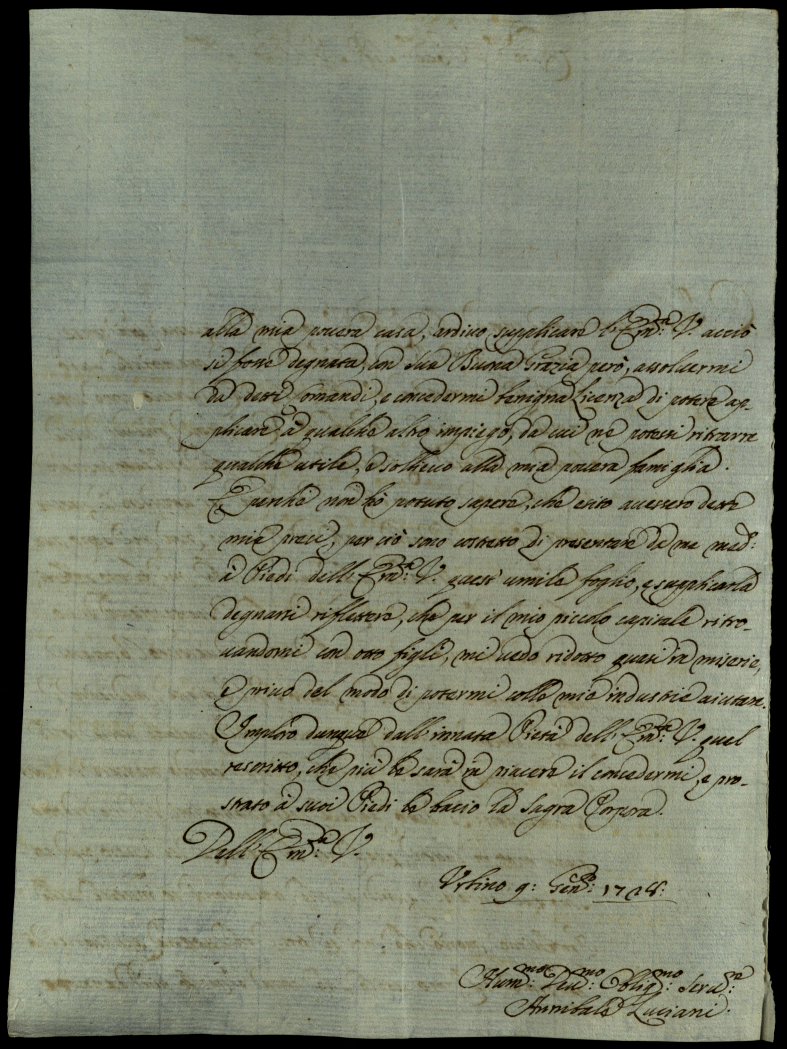 alla mia povera casa, ardivo supplicare l'Em:za V. acciò
si fosse degnata, con sua Buona Grazia però, assolvermi
da detti Comandi, e concedermi benigna Licenza di potere ap-
plicare à qualche altro impiego, da cui ne potessi ritrarre
qualche utile, e sollievo alla mia povera famiglia.
E perchè non hò potuto sapere, che esito avessero dette
mie preci, per ciò sono costretto di presentare da me med:o
à Piedi dell'Em:za V. quest'umile foglio, e supplicarla
degnarsi riflettere, che per il mio piccolo capitale ritro-
vandomi con otto figli, mi vedo ridotto quasi in miserie,
e privo del modo di potermi colle mie industrie aiutare.
Imploro dunque dall'innata Pietà dell'Em:za V. quel
rescritto, che più le sarà in piacere il concedermi, e pro-
strato à suoi Piedi le bacio la Sagra Porpora.
Dell'Em:za V.
Urbino 9: Gen:o 1728:
Hum:mo Dev:mo Oblig:mo Serv:e
Annibale Luciani.